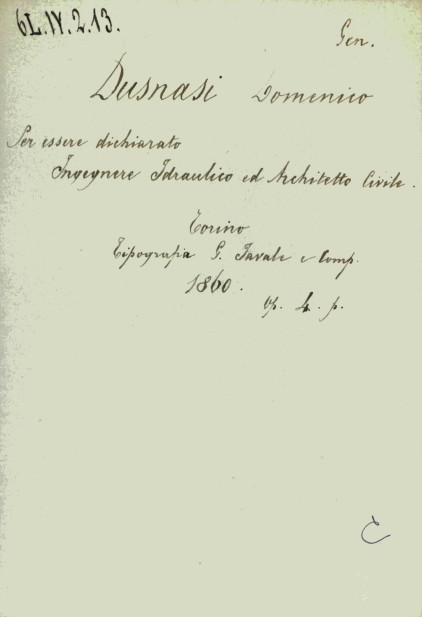 6L.IV.2.13.
Gen.
Dusnasi Domenico
Per essere dichiarato
Ingegnere Idraulico ed Architetto Civile.
Torino
Tipografia G. Favale e Comp.
1860.
op. 4. p.
C